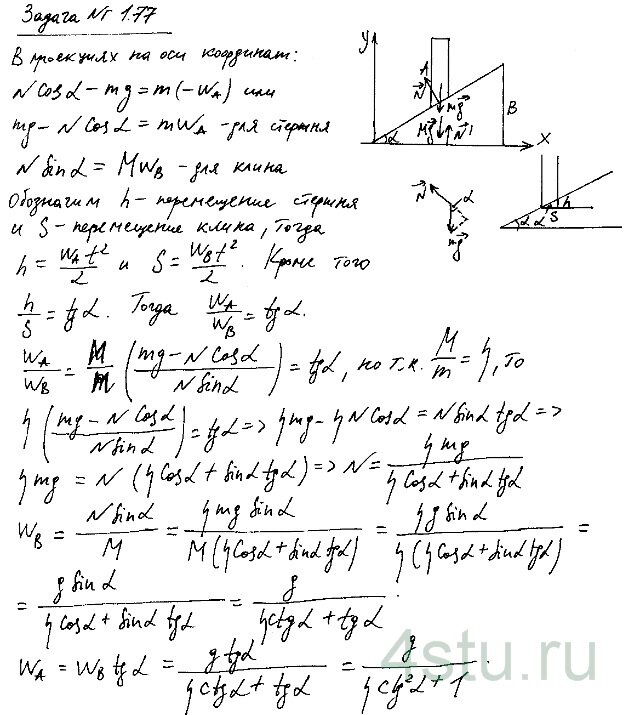 Задача № 1.77
В проекциях на оси координат:
N Cosα − mg = m(−W_A) или
mg − N Cosα = mW_A - для стержня
N Sinα = MW_B - для клина
Обозначим h - перемещение стержня
и S - перемещение клина, тогда
h = W_A t²/2 и S = W_B t²/2. Кроме того
h/S = tgα. Тогда W_A/W_B = tgα.
W_A/W_B = M/m ((mg − N Cosα)/(N Sinα)) = tgα, но т.к. M/m = η, то
η((mg − N Cosα)/(N Sinα)) = tgα => ηmg − ηN Cosα = N Sinα tgα =>
ηmg = N(ηCosα + Sinα tgα) => N = ηmg/(ηCosα + Sinα tgα)
W_B = N Sinα/M = ηmg Sinα/(M(ηCosα + Sinα tgα)) = ηg Sinα/(η(ηCosα + Sinα tgα)) =
= g Sinα/(ηCosα + Sinα tgα) = g/(ηctgα + tgα).
W_A = W_B tgα = g tgα/(ηctgα + tgα) = g/(ηctg²α + 1).
y
A
N⃗
mg⃗
B
Mg⃗
N⃗'
α
x
N⃗
α
mg⃗
h
S
α
α
4stu.ru